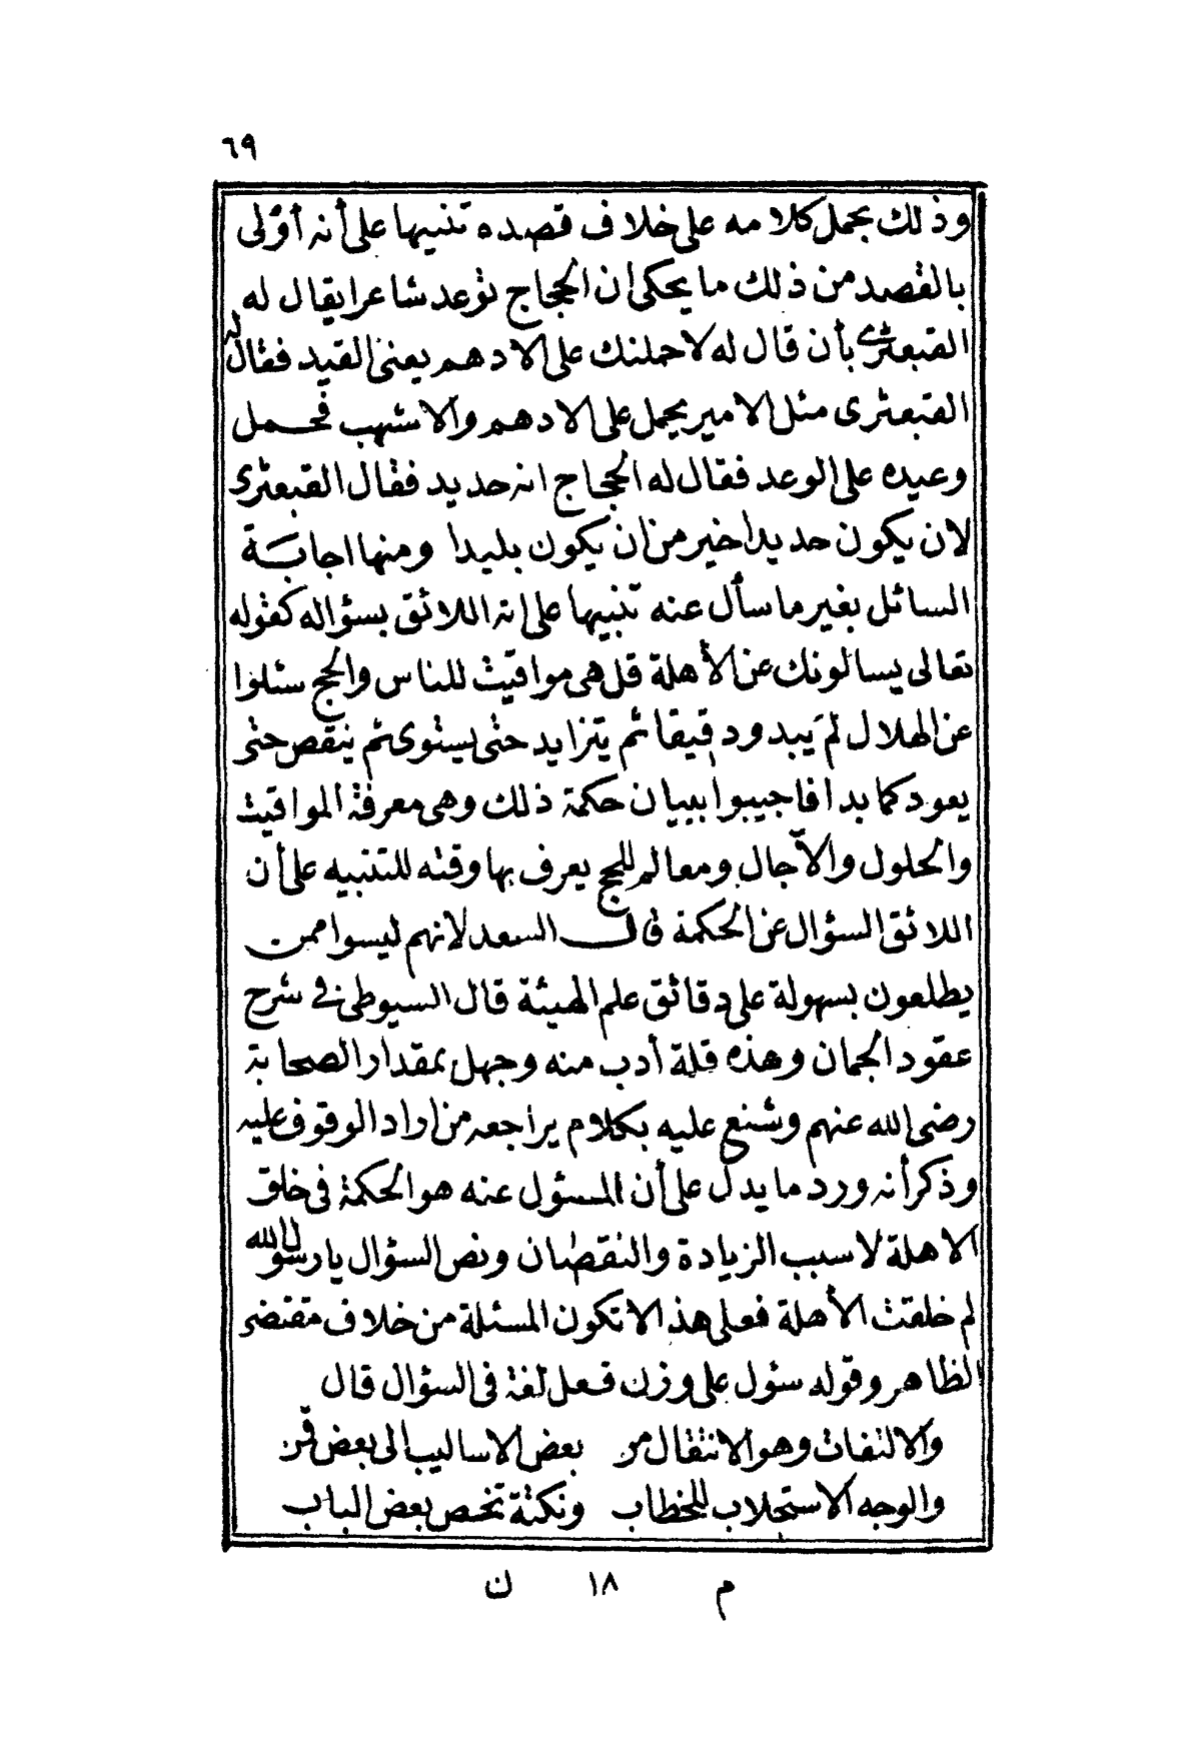 ٦٩
وذلك بحمل كلامه على خلاف قصده تنبيها على أنه أولى
بالقصد من ذلك ما يحكى ان الحجاج توعد شاعرا يقال له
القبعثرى بأن قال له لاحملنك على الادهم يعنى القيد فقال له
القبعثرى مثل الامير يحمل على الادهم والاشهب فحمل
وعيده على الوعد فقال له الحجاج انه حديد فقال القبعثرى
لان يكون حديدا خير من ان يكون بليدا ومنها اجابة
السائل بغير ما سأل عنه تنبيها على انه اللائق بسؤاله كقوله
تعالى يسالونك عن الأهلة قل هى مواقيت للناس والحج سئلوا
عن الهلال لم يبدو دقيقا ثم يتزايد حتى يستوى ثم ينقص حتى
يعود كما بدا فاجيبوا ببيان حكمة ذلك وهى معرفة المواقيت
والحلول والآجال ومعالم للحج يعرف بها وقته للتنبيه على أن
اللائق السؤال عن الحكمة قال السعد لانهم ليسوا ممن
يطلعون بسهولة على دقائق علم الهيئة قال السيوطى فى شرح
عقود الجمان وهذه قلة أدب منه وجهل بمقدار الصحابة
رضى الله عنهم وشنع عليه بكلام يراجعه من اراد الوقوف عليه
وذكر أنه ورد ما يدل على أن المسؤل عنه هو الحكمة فى خلق
الاهلة لا سبب الزيادة والنقصان ونص السؤال يا رسول الله
لم خلقت الأهلة فعلى هذا لا تكون المسئلة من خلاف مقتضى
الظاهر وقوله سئول على وزن فعل لغة فى السؤال قال
والالتفات وهو الانتقال من بعض الاساليب الى بعض قمن
والوجه الاستجلاب للخطاب ونكتة تخص بعض الباب
م ١٨ ن